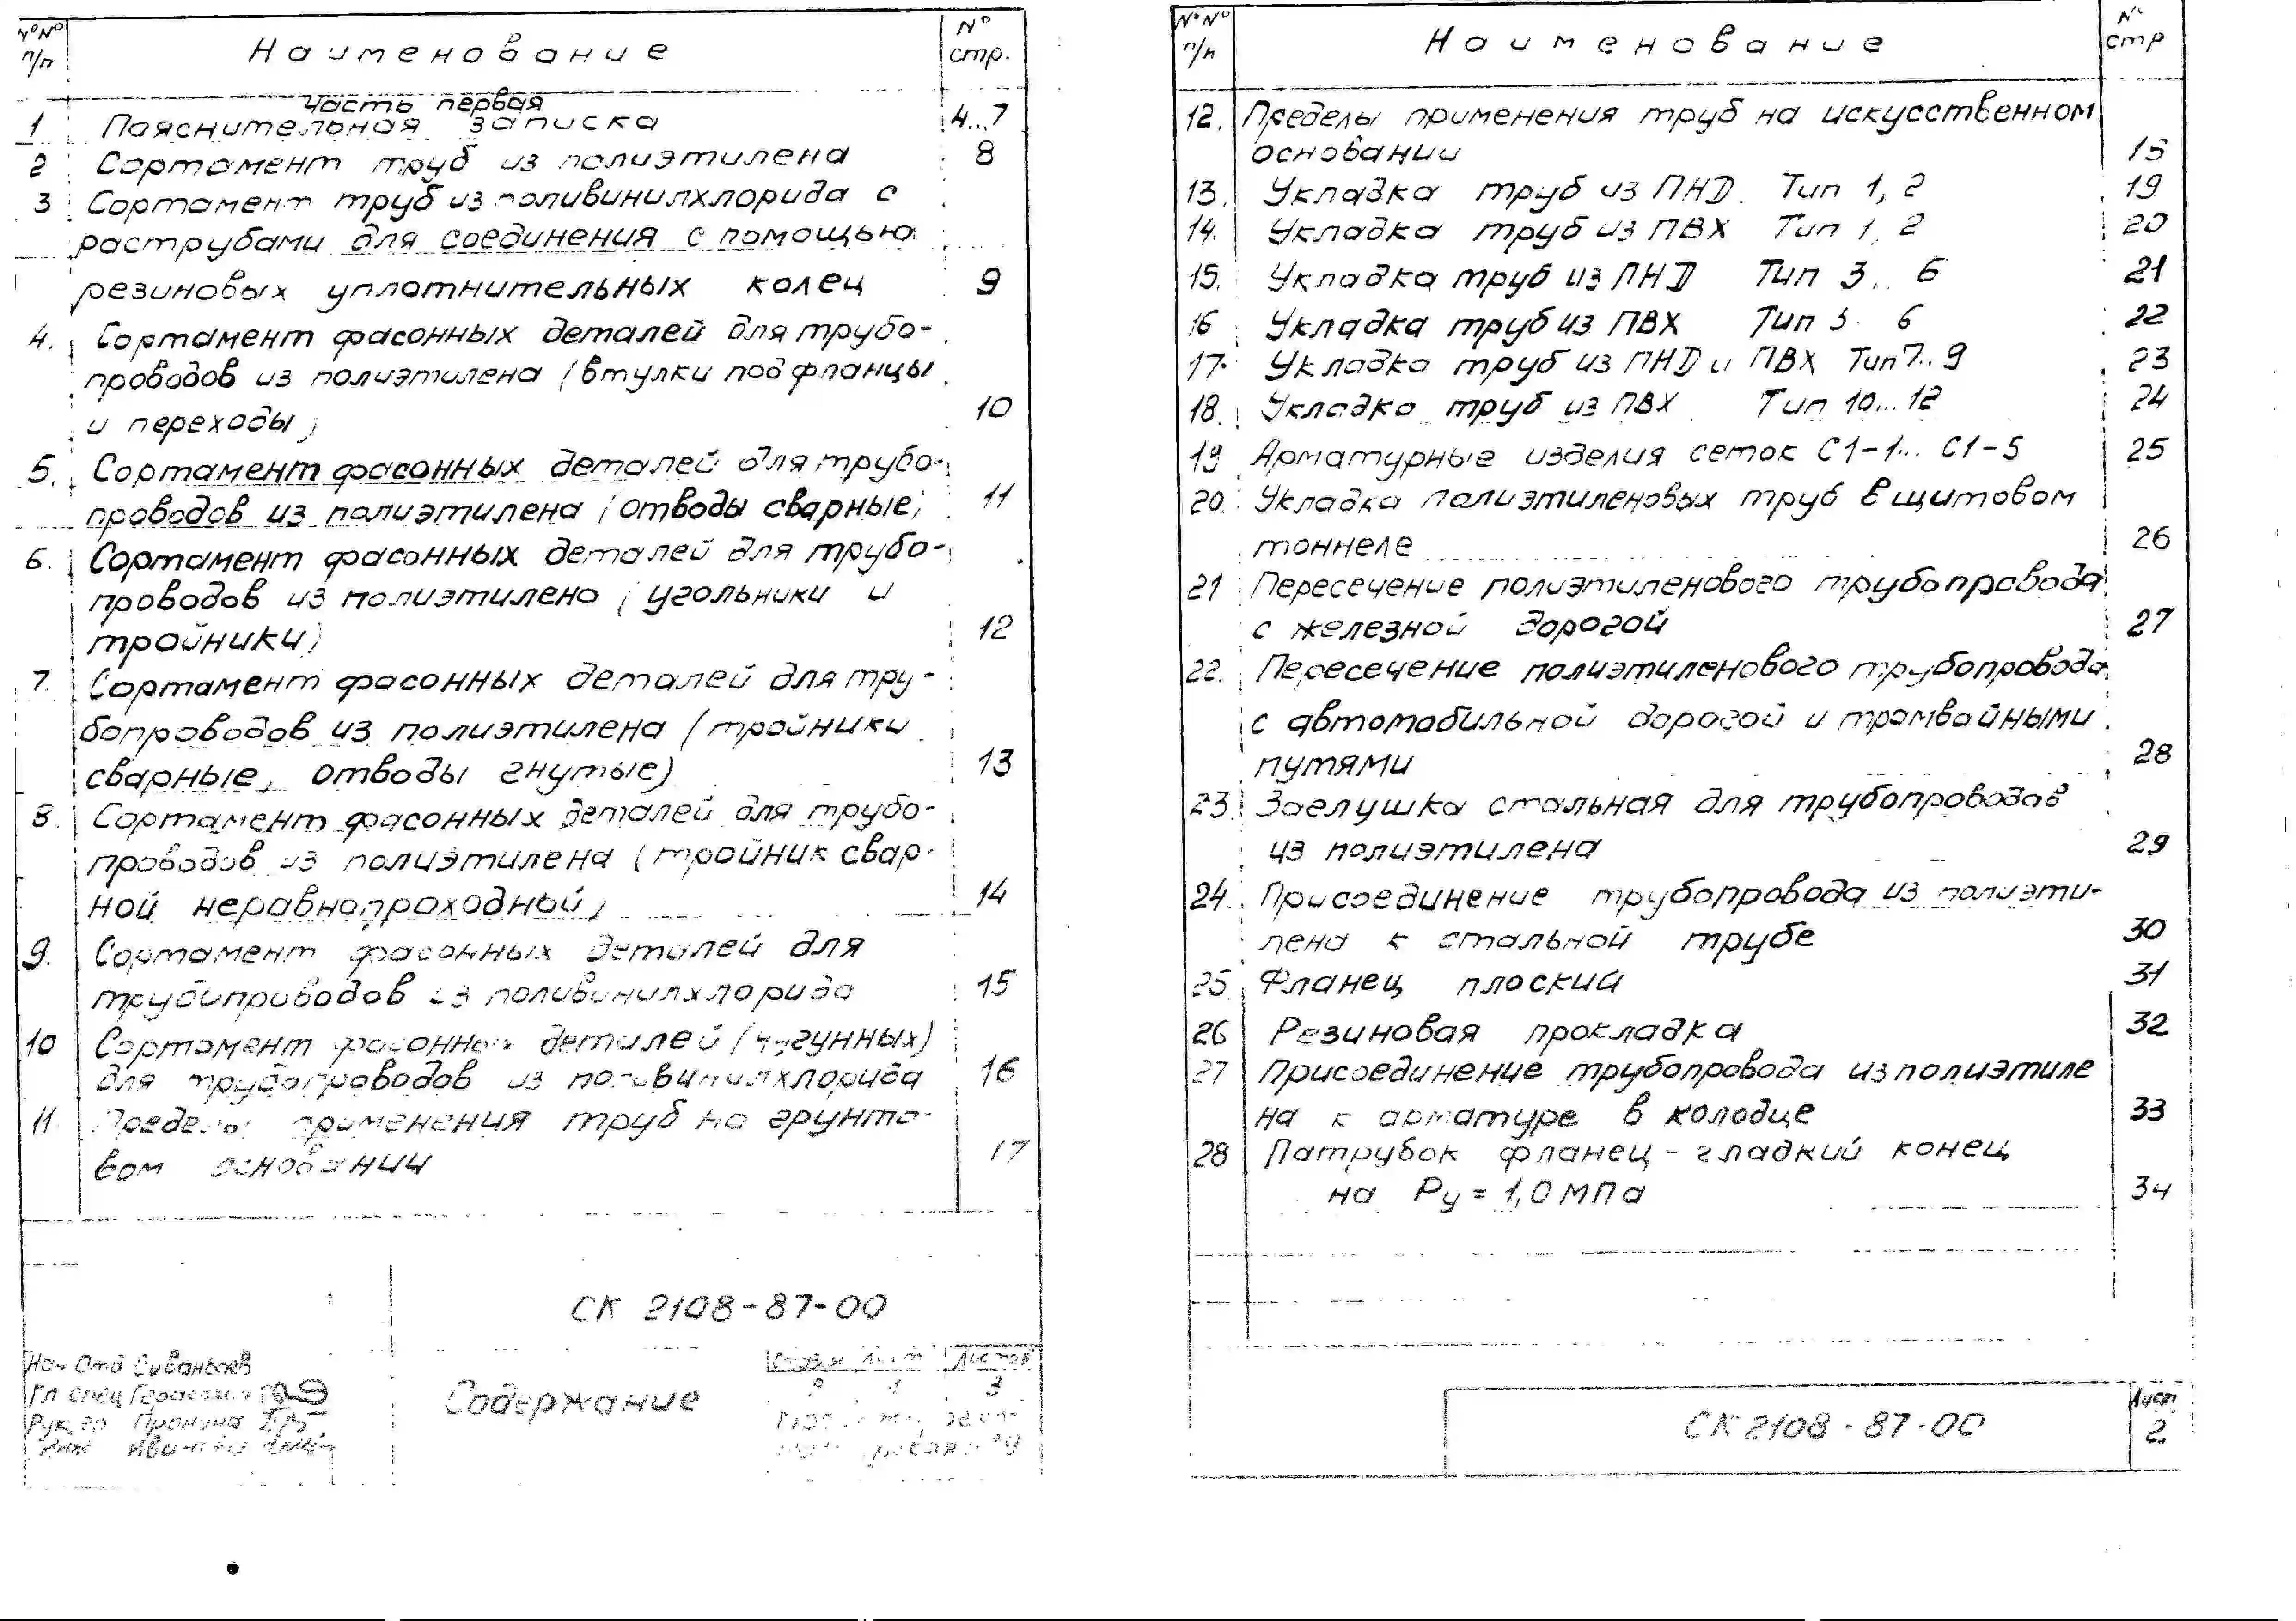 №№ п/п Наименование № стр.
Часть первая
1 Пояснительная записка 4...7
2 Сортамент труб из полиэтилена 8
3 Сортамент труб из поливинилхлорида с
раструбами для соединения с помощью
резиновых уплотнительных колец 9
4. Сортамент фасонных деталей для трубо-
проводов из полиэтилена (втулки под фланцы
и переходы) 10
5. Сортамент фасонных деталей для трубо-
проводов из полиэтилена (отводы сварные) 11
6. Сортамент фасонных деталей для трубо-
проводов из полиэтилена (угольники и
тройники) 12
7. Сортамент фасонных деталей для тру-
бопроводов из полиэтилена (тройники
сварные, отводы гнутые) 13
8. Сортамент фасонных деталей для трубо-
проводов из полиэтилена (тройник свар-
ной неравнопроходный) 14
9. Сортамент фасонных деталей для
трубопроводов из поливинилхлорида 15
10 Сортамент фасонных деталей (чугунных)
для трубопроводов из поливинилхлорида 16
11. Пределы применения труб на грунто-
вом основании 17
СК 2108-87-00
Нач Отд
Гл спец
Рук. гр Пронина
Инж
Содержание
Стадия Лист Листов
Р 1 3
№№ п/п Наименование № стр
12. Пределы применения труб на искусственном
основании 18
13. Укладка труб из ПНД. Тип 1, 2 19
14. Укладка труб из ПВХ Тип 1, 2 20
15. Укладка труб из ПНД Тип 3.. 6 21
16 Укладка труб из ПВХ Тип 3. 6 22
17. Укладка труб из ПНД и ПВХ Тип 7..9 23
18. Укладка труб из ПВХ Тип 10...12 24
19 Арматурные изделия сеток С1-1... С1-5 25
20. Укладка полиэтиленовых труб в щитовом
тоннеле 26
21 Пересечение полиэтиленового трубопровода
с железной дорогой 27
22. Пересечение полиэтиленового трубопровода
с автомобильной дорогой и трамвайными
путями 28
23. Заглушка стальная для трубопроводов
из полиэтилена 29
24. Присоединение трубопровода из полиэти-
лена к стальной трубе 30
25. Фланец плоский 31
26 Резиновая прокладка 32
27 Присоединение трубопровода из полиэтиле
на к арматуре в колодце 33
28 Патрубок фланец - гладкий конец
на Ру = 1,0 МПа 34
СК 2108-87-00
Лист
2